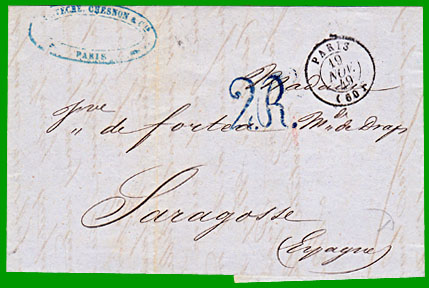 CHESNON & Cie
PARIS
PARIS
19
NOV.
49
(60)
Madame
2.R.
de fortea Mde de Draps
Saragosse
(Espagne)